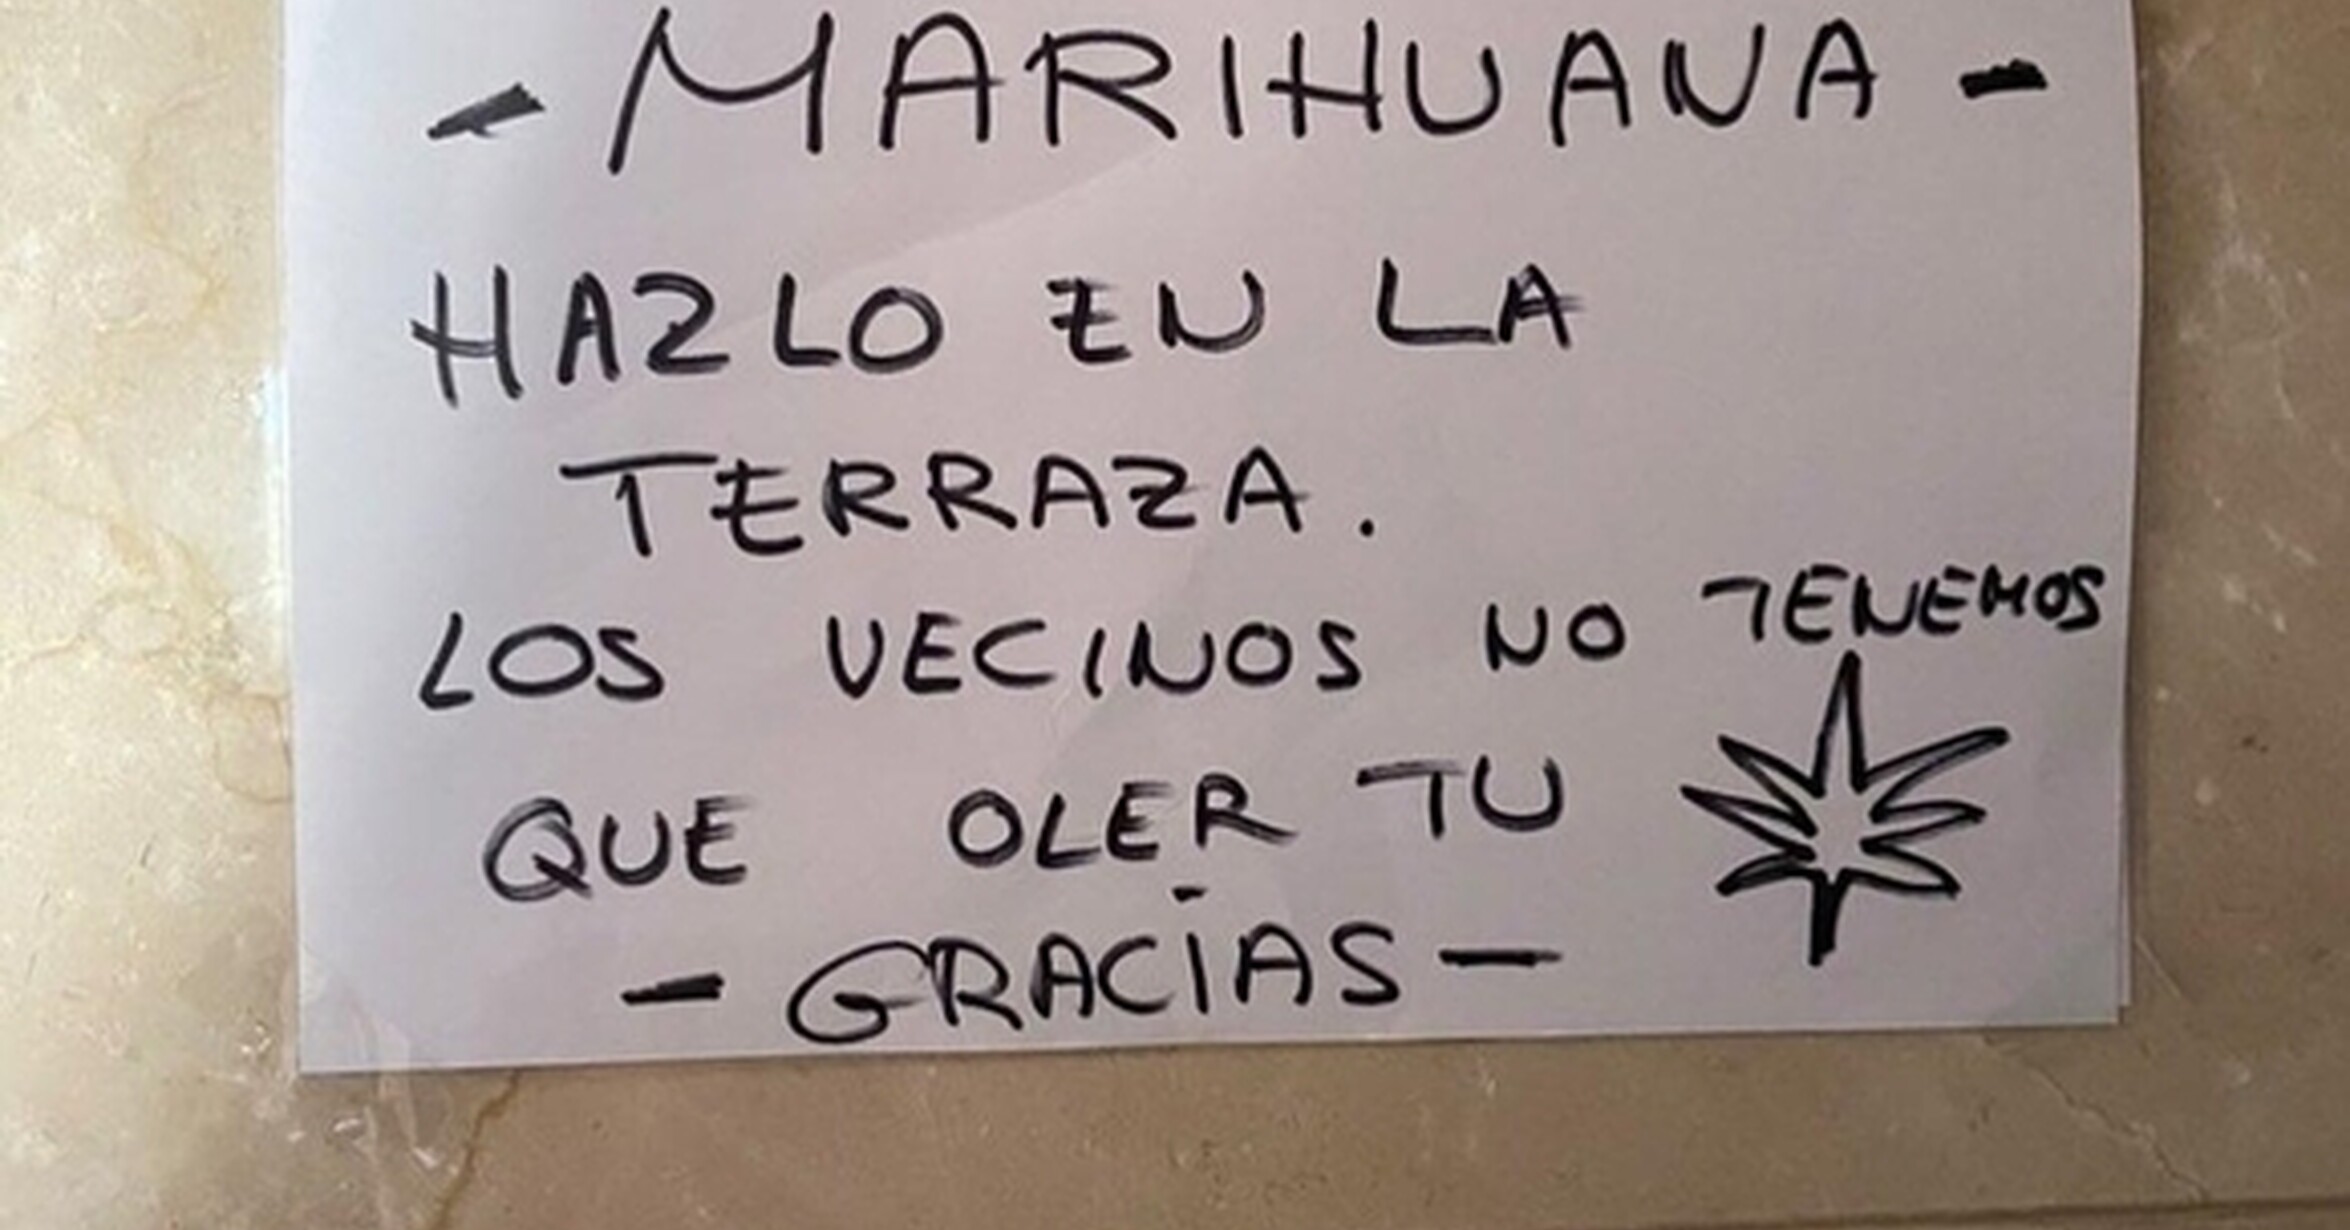 - MARIHUANA -
HAZLO EN LA
TERRAZA.
LOS VECINOS NO TENEMOS
QUE OLER TU
- GRACIAS -